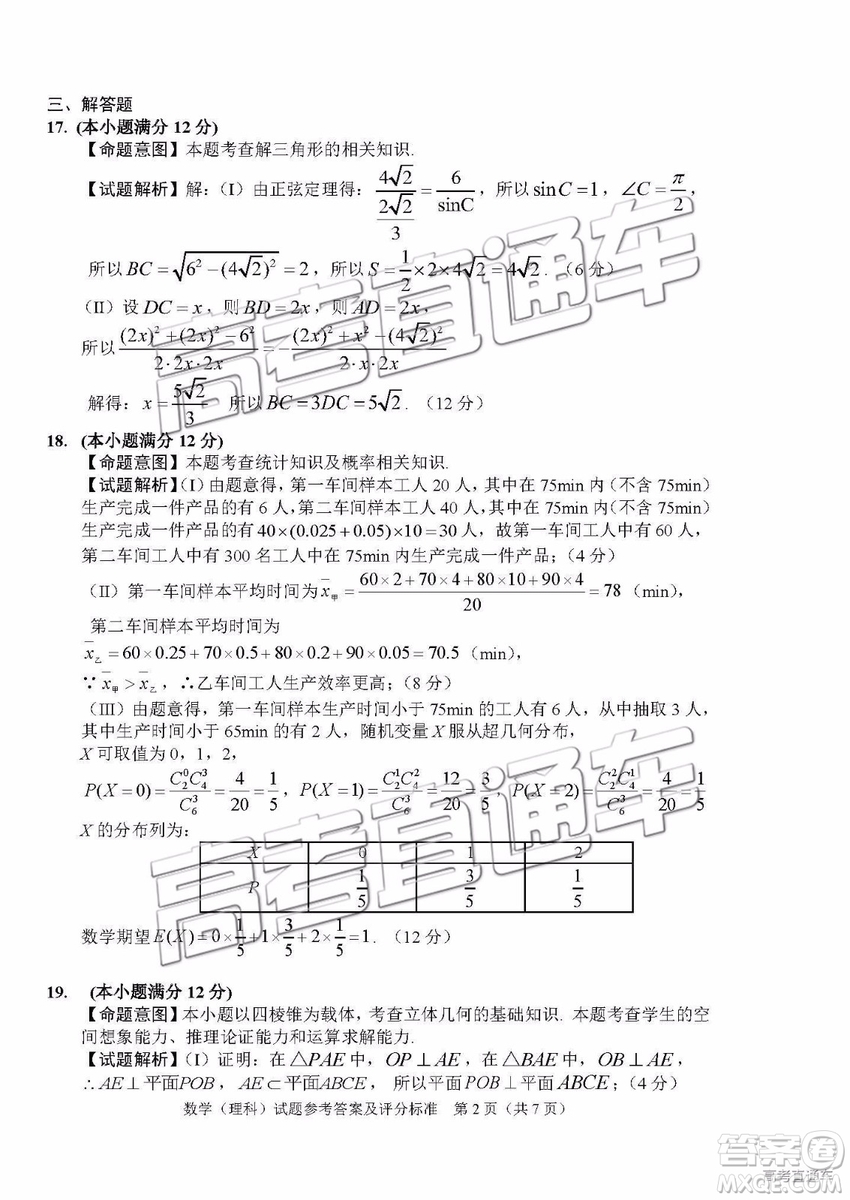 三、解答题
17. (本小题满分 12 分)
【命题意图】本题考查解三角形的相关知识.
【试题解析】解：(I) 由正弦定理得：$\frac{4\sqrt{2}}{\frac{2\sqrt{2}}{3}}=\frac{6}{\sin C}$，所以 $\sin C=1$，$\angle C=\frac{\pi}{2}$，
所以 $BC=\sqrt{6^2-(4\sqrt{2})^2}=2$，所以 $S=\frac{1}{2}\times2\times4\sqrt{2}=4\sqrt{2}$．（6 分）
(II) 设 $DC=x$，则 $BD=2x$，则 $AD=2x$，
所以 $\frac{(2x)^2+(2x)^2-6^2}{2\cdot2x\cdot2x}=-\frac{(2x)^2+x^2-(4\sqrt{2})^2}{2\cdot x\cdot2x}$
解得：$x=\frac{5\sqrt{2}}{3}$ 所以 $BC=3DC=5\sqrt{2}$．（12 分）
18. (本小题满分 12 分)
【命题意图】本题考查统计知识及概率相关知识.
【试题解析】(I) 由题意得，第一车间样本工人 20 人，其中在 75min 内（不含 75min）
生产完成一件产品的有 6 人，第二车间样本工人 40 人，其中在 75min 内（不含 75min）
生产完成一件产品的有 $40\times(0.025+0.05)\times10=30$ 人，故第一车间工人中有 60 人，
第二车间工人中有 300 名工人中在 75min 内生产完成一件产品；（4 分）
(II) 第一车间样本平均时间为 $\overline{x}_{甲}=\frac{60\times2+70\times4+80\times10+90\times4}{20}=78$（min），
第二车间样本平均时间为
$\overline{x}_{乙}=60\times0.25+70\times0.5+80\times0.2+90\times0.05=70.5$（min），
∵$\overline{x}_{甲}>\overline{x}_{乙}$，∴乙车间工人生产效率更高；（8 分）
(III) 由题意得，第一车间样本生产时间小于 75min 的工人有 6 人，从中抽取 3 人，
其中生产时间小于 65min 的有 2 人，随机变量 X 服从超几何分布，
X 可取值为 0，1，2，
$P(X=0)=\frac{C_2^0C_4^3}{C_6^3}=\frac{4}{20}=\frac{1}{5}$，$P(X=1)=\frac{C_2^1C_4^2}{C_6^3}=\frac{12}{20}=\frac{3}{5}$，$P(X=2)=\frac{C_2^2C_4^1}{C_6^3}=\frac{4}{20}=\frac{1}{5}$
X 的分布列为：
X 0 1 2
P $\frac{1}{5}$ $\frac{3}{5}$ $\frac{1}{5}$
数学期望 $E(X)=0\times\frac{1}{5}+1\times\frac{3}{5}+2\times\frac{1}{5}=1$．（12 分）
19. (本小题满分 12 分)
【命题意图】本小题以四棱锥为载体，考查立体几何的基础知识. 本题考查学生的空
间想象能力、推理论证能力和运算求解能力.
【试题解析】(I) 证明：在 △PAE 中，OP⊥AE，在 △BAE 中，OB⊥AE，
∴AE⊥平面POB，AE⊂平面ABCE， 所以平面 POB⊥平面 ABCE；（4 分）
数学（理科）试题参考答案及评分标准 第 2 页（共 7 页）
高考直通车
高考直通车
答案圈
高考直通车
MXQE.COM